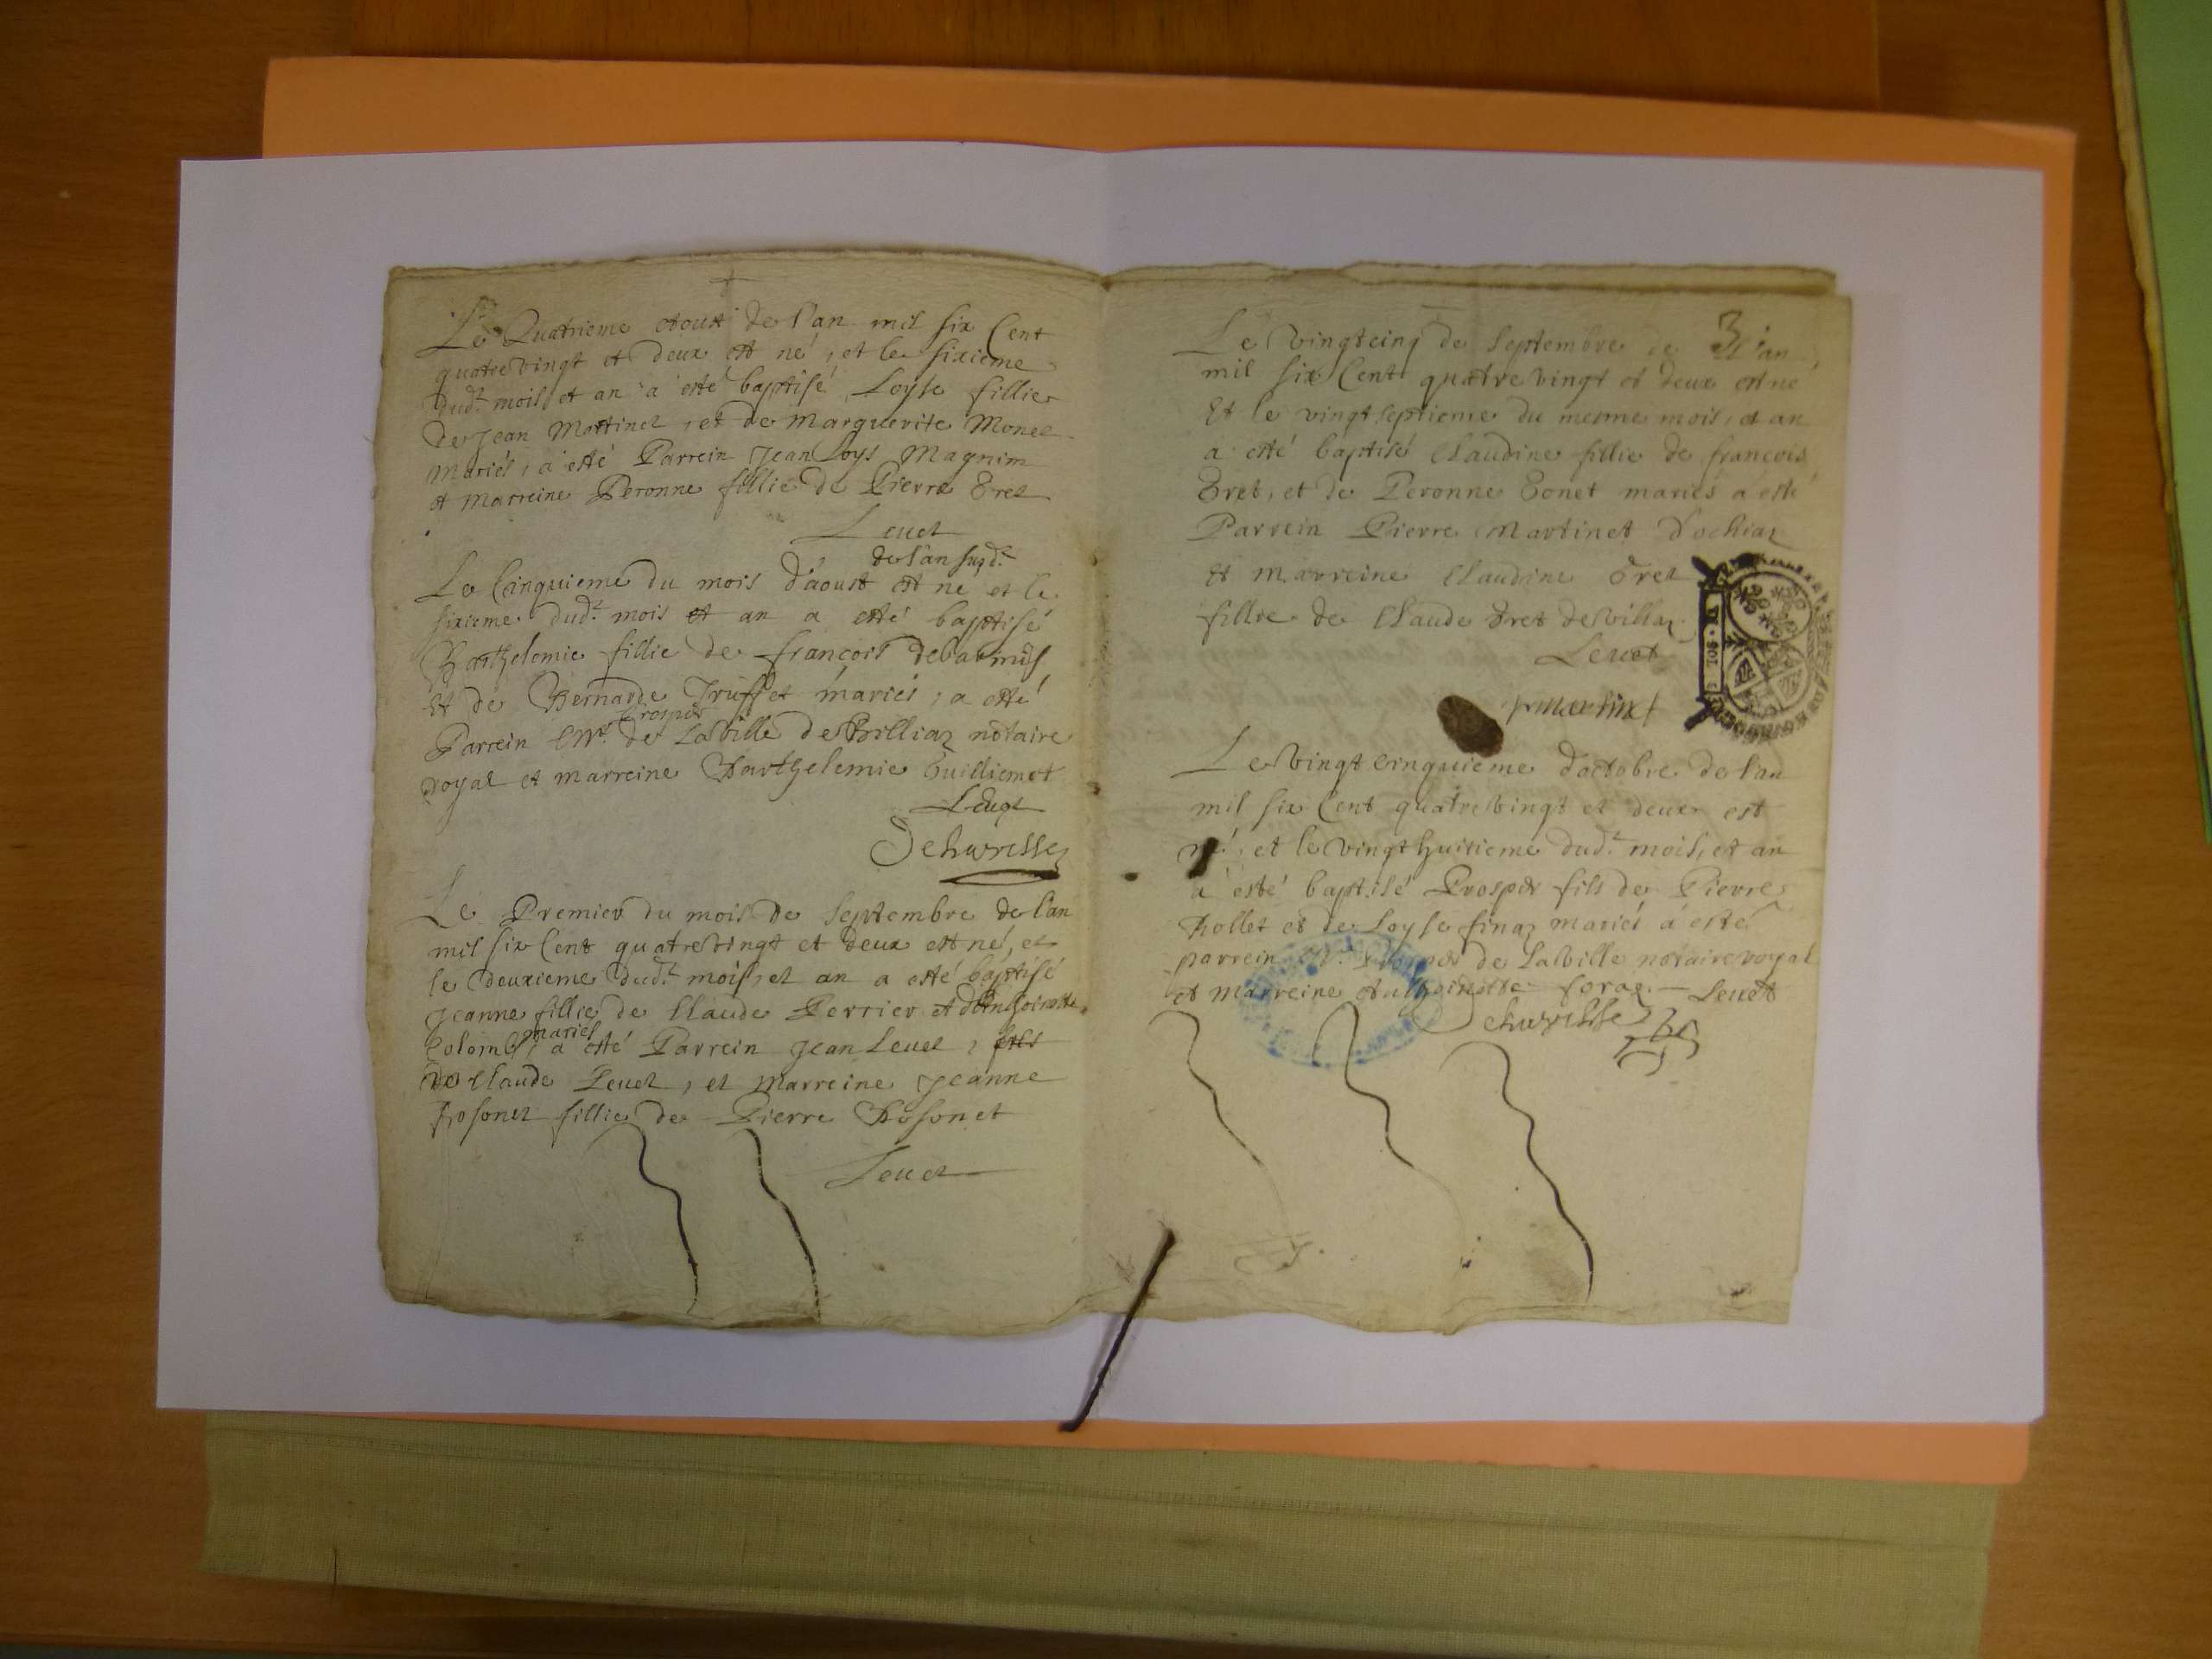 Le Quatrieme Aoust de l'an mil six Cent
quatrevingt et deux est né, et le sixieme
dud.t mois et an a esté baptisé Loyse fillie
de Jean Mattinet, et de Marguerite Monet
Mariés, a esté Parrein Jean Loys Magnim
et Marreine Peronne fillie de Pierre Tret
Leuet
de l'an susd.t
Le Cinquieme du mois d'aoust est ne et le
sixieme dud.t mois et an a esté baptisé
Barthelemie fillie de françois
et de Bernarde Truffet mariés, a esté
Prosper
Parrein M.e de LaVille de Billiaz notaire
royal et marreine Barthelemie Guilliemet
Leuet
Dehurisse
Le Premier du mois de Septembre de l'an
mil six Cent quatrevingt et deux est né, et
le deuxieme dud.t mois, et an a esté baptisé
Jeanne fillie de Claude Perrier et d'Anthoinette
mariés
Colomb, a esté Parrein Jean Leuet, fils
de Claude Leuet, et Marreine Jeanne
Rosonet fillie de Pierre Rosonet
Leuet
3
Le vingtcinq de Septembre de l'an
mil six Cent quatrevingt et deux est né
Et le vingtseptieme du mesme mois, et an
a esté baptisé Claudine fillie de françois
Tret, et de Peronne Gonet mariés a esté
Parrein Pierre Martinet d'ochiaz
et Marreine Claudine Tret
fillie de Claude Tret de Villaz
Leuet
pmartinet
Le Vingtcinquieme d'octobre de l'an
mil six Cent quatrevingt et deux est
né, et le vingthuitieme dud.t mois, et an
a esté baptisé Prosper fils de Pierre
Rollet et de Loyse finaz mariés a esté
parrein M.e Prosper de LaVille notaire royal
et Marreine Anthoinette foraz Leuet
Dehurisse